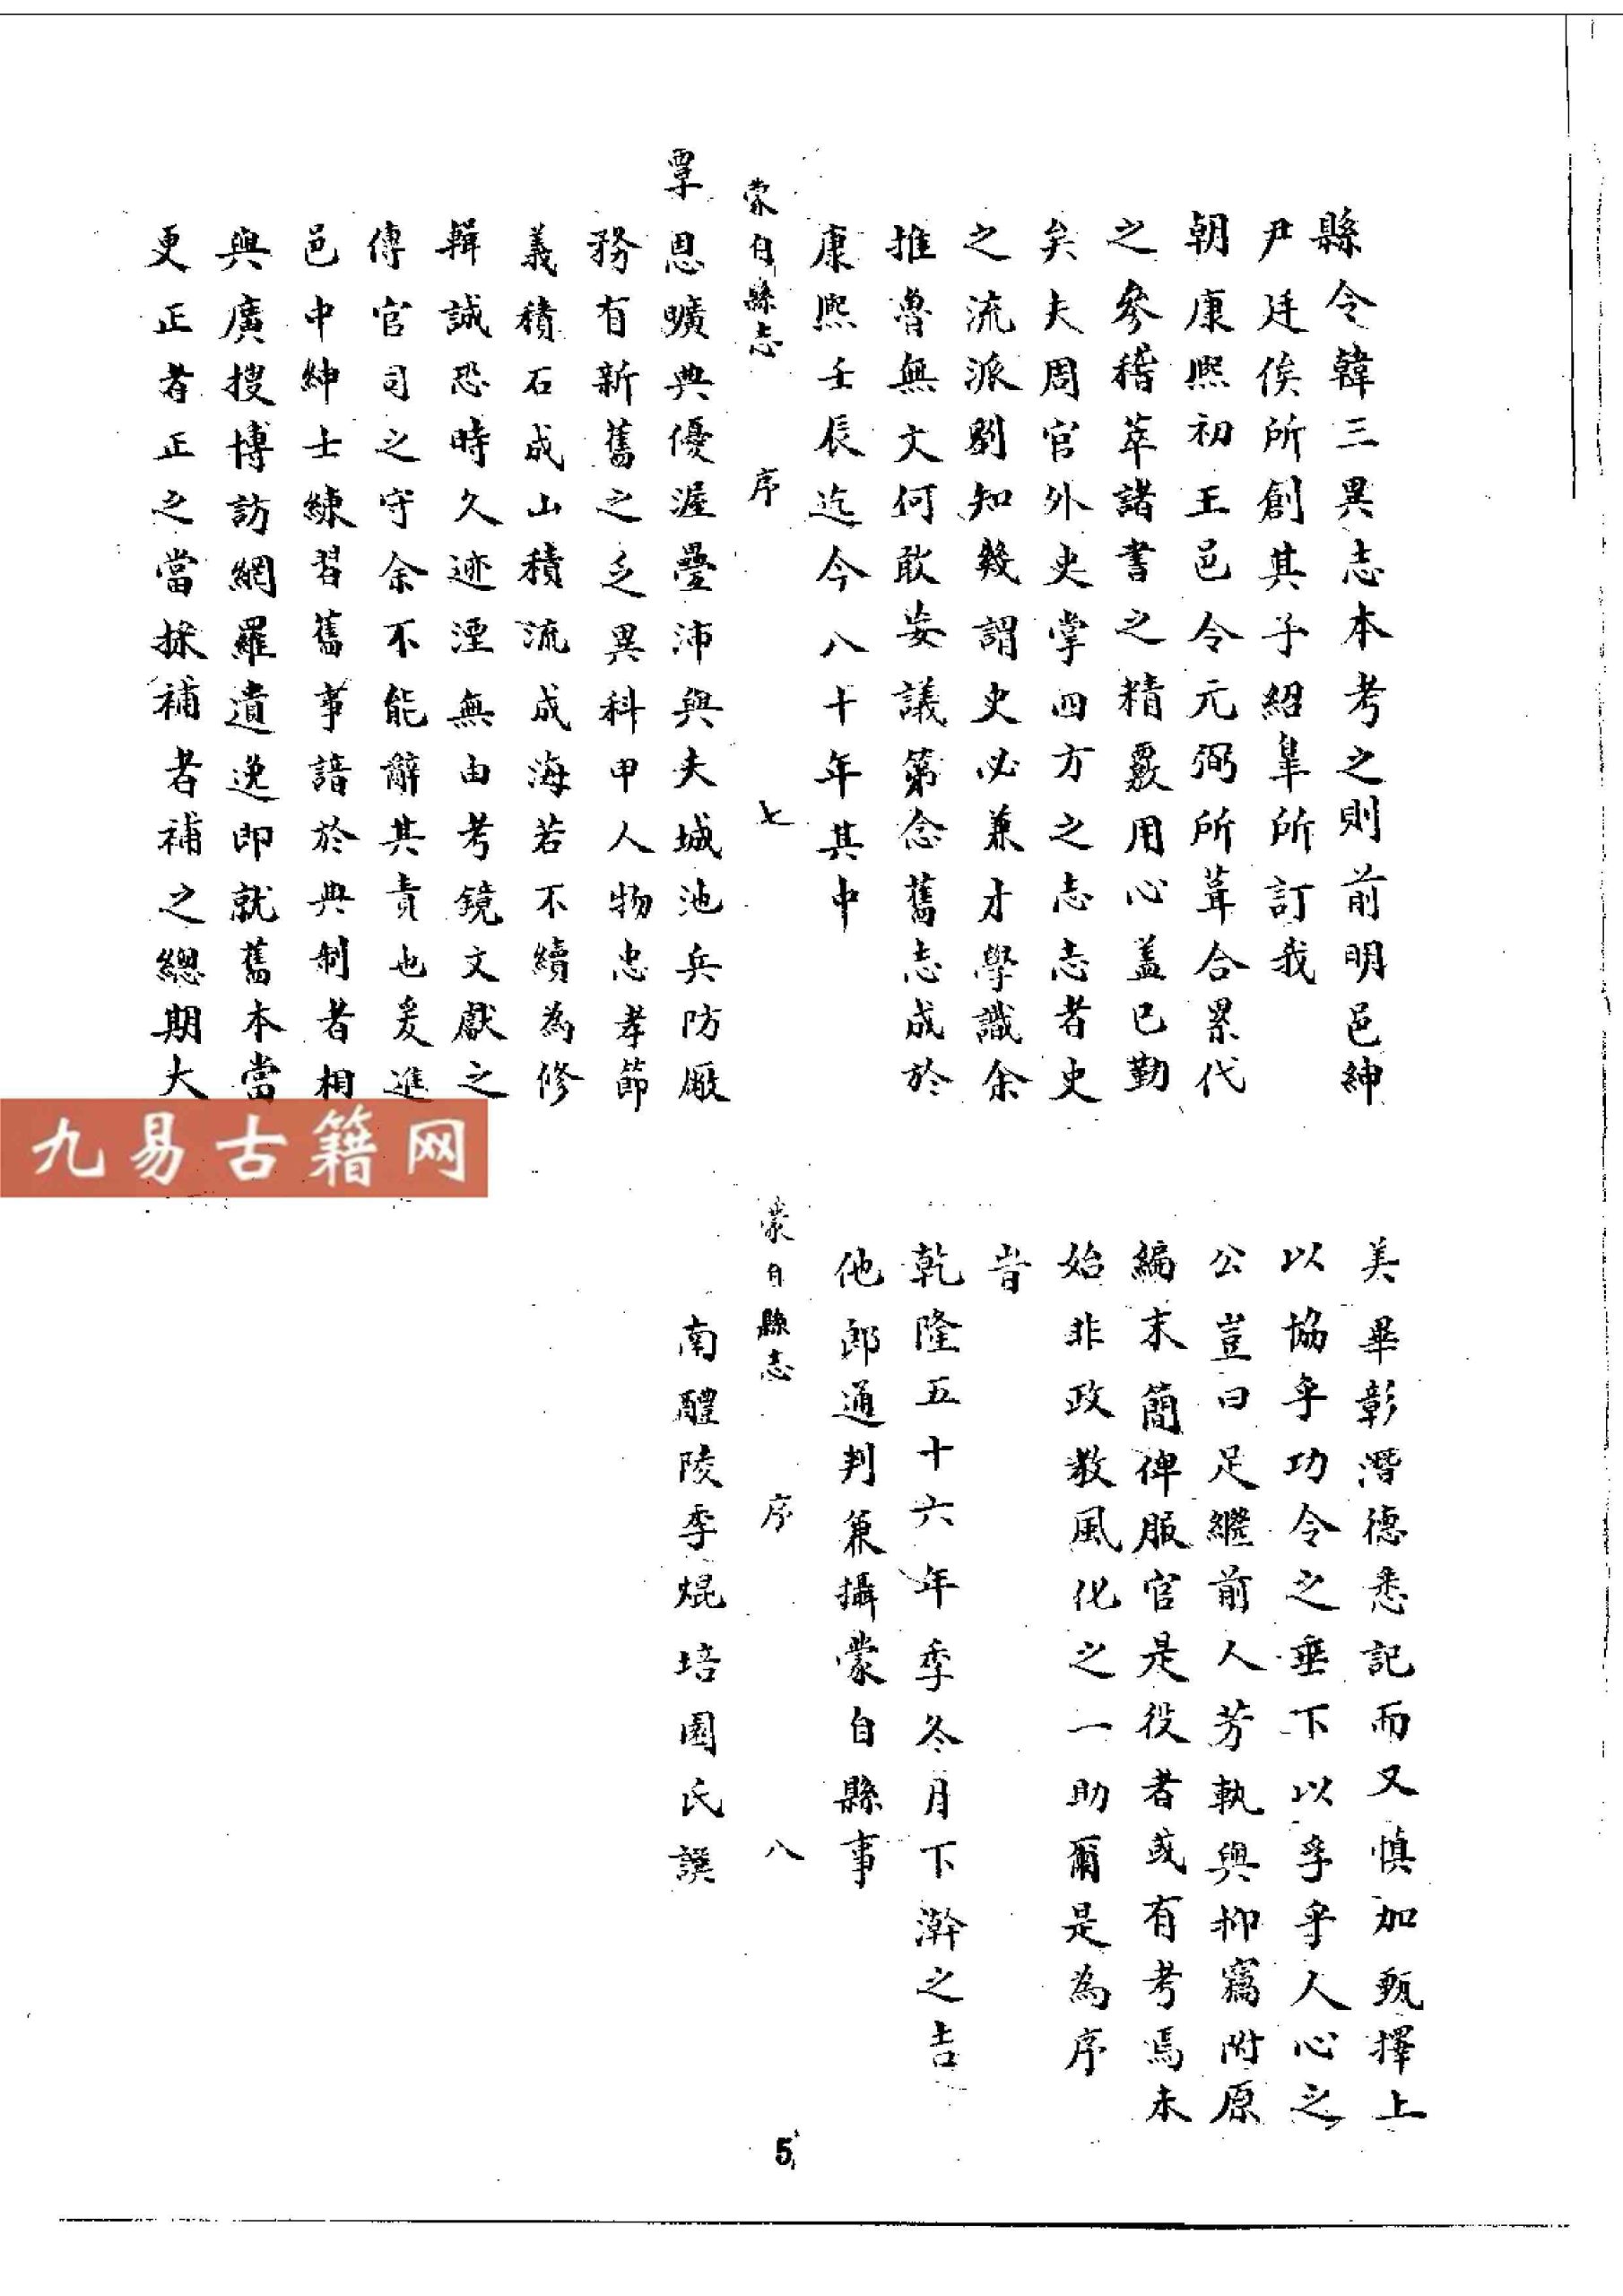 縣令韓三異志本考之則前明邑紳
尹廷俟所創其子紹臯所訂我
朝康熙初王邑令元弼所葺合累代
之參稽萃諸書之精覈用心蓋已勤
矣夫周官外史掌四方之志志者史
之流派別知幾謂史必兼才學識余
推魯無文何敢妄議第念舊志成於
康熙壬辰迄今八十年其中
蒙自縣志 序 七
覃恩曠典優渥疊沛與夫城池兵防廠
務有新舊之乏異科甲人物忠孝節
義積石成山積流成海若不續為修
輯誠恐時久迹湮無由考鏡文獻之
傳官司之守余不能辭其責也爰進
邑中紳士練習舊事諳於典制者相
與廣搜博訪網羅遺逸即就舊本當
更正者正之當採補者補之總期大
九易古籍网
美畢彰潛德悉記而又慎加甄擇上
以協乎功令之垂下以孚乎人心之
公豈曰足繼前人芳執與抑竊附原
編末簡俾服官是役者或有考焉未
始非政教風化之一助爾是為序
旹
乾隆五十六年季冬月下澣之吉
他郎通判兼攝蒙自縣事
蒙自縣志 序 八
南醴陵李焜培園氏譔
5